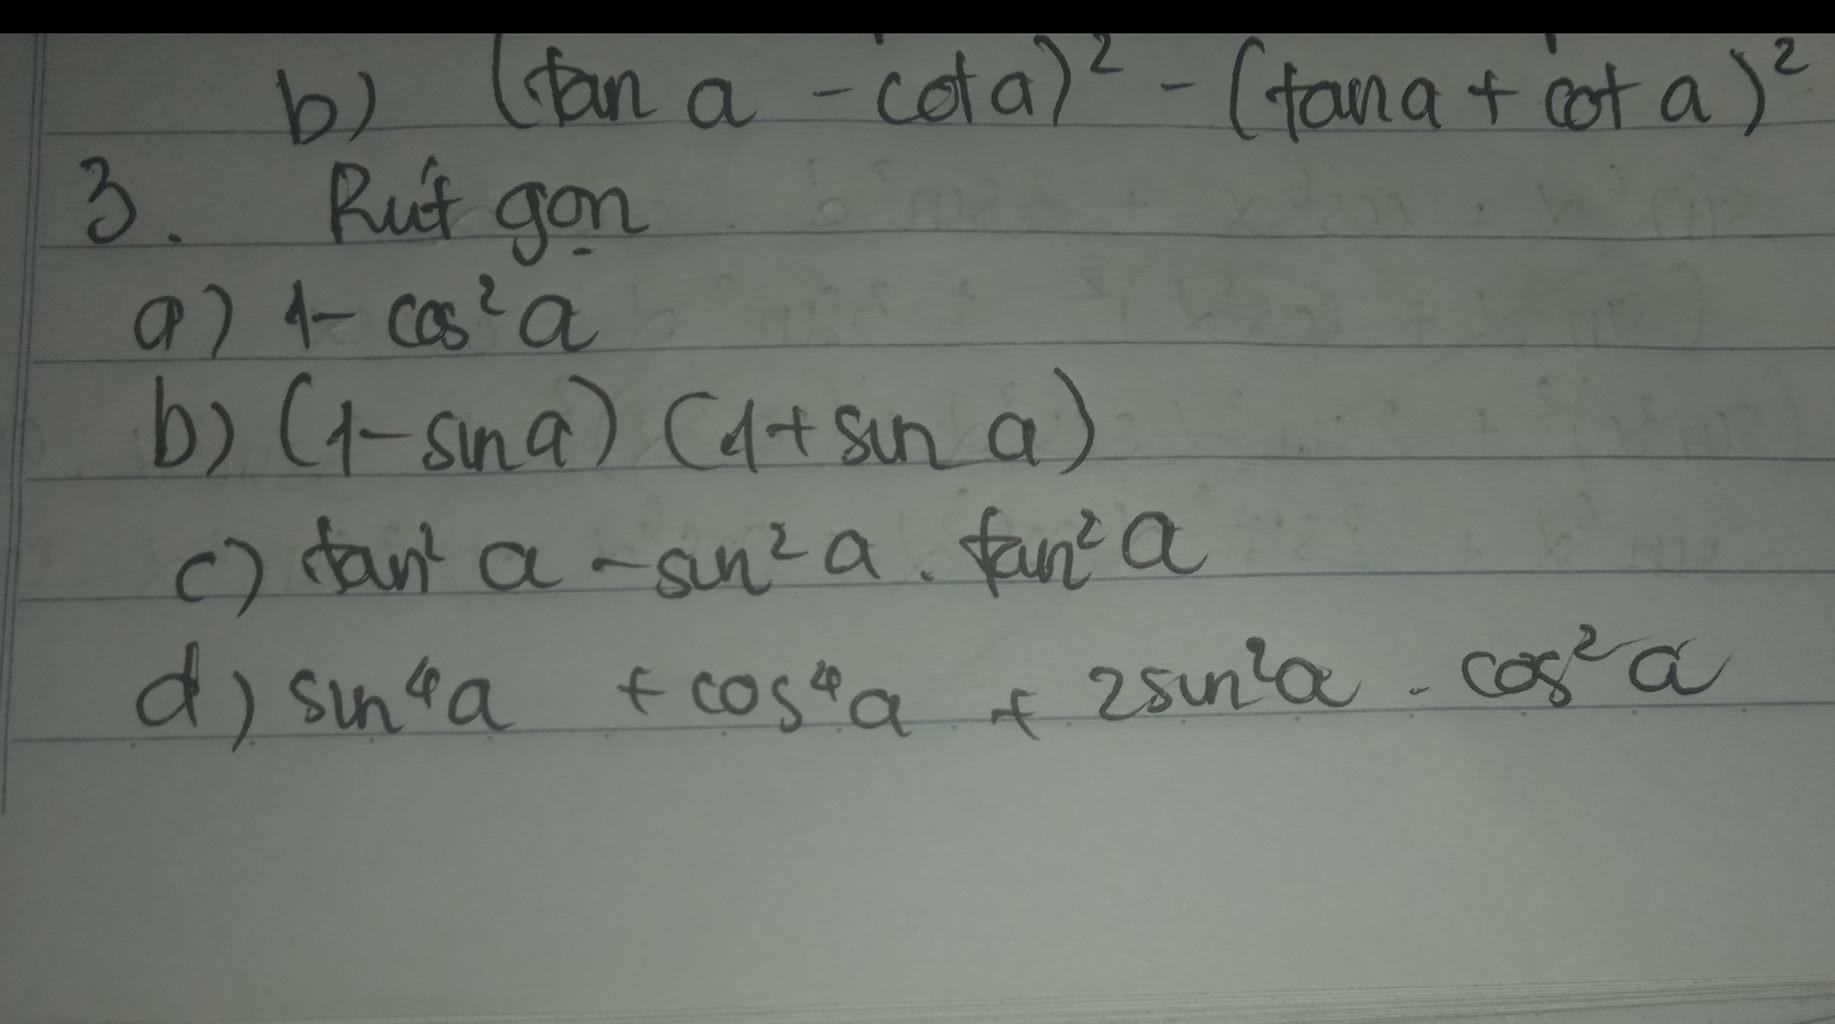 b) (tan a - cot a)² - (tan a + cot a)²
3. Rút gọn
a) 1 - cos² a
b) (1 - sin a) (1 + sin a)
c) tan² a - sin² a . tan² a
d) sin⁴ a + cos⁴ a + 2 sin² a . cos² a